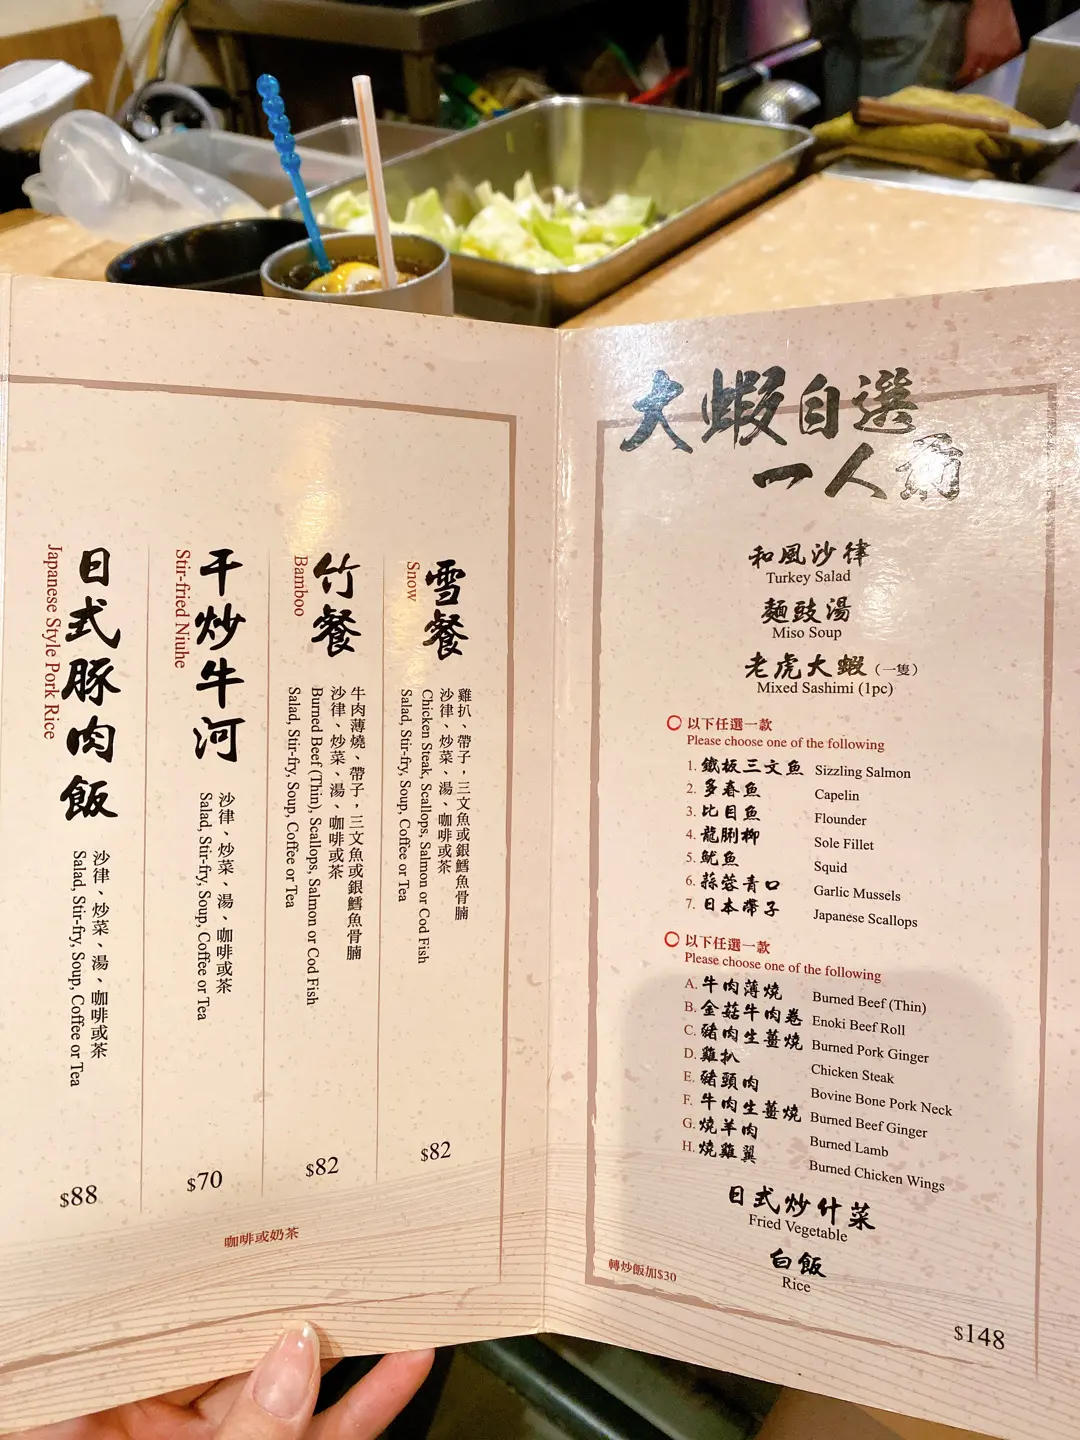 日式豚肉飯
Japanese Style Pork Rice
沙律、炒菜、湯、咖啡或茶
Salad, Stir-fry, Soup, Coffee or Tea
$88
干炒牛河
Stir-fried Niuhe
沙律、炒菜、湯、咖啡或茶
Salad, Stir-fry, Soup, Coffee or Tea
$70
竹餐
Bamboo
牛肉薄燒、帶子，三文魚或銀鱈魚骨腩
沙律、炒菜、湯、咖啡或茶
Burned Beef (Thin), Scallops, Salmon or Cod Fish
Salad, Stir-fry, Soup, Coffee or Tea
$82
雪餐
Snow
雞扒、帶子，三文魚或銀鱈魚骨腩
沙律、炒菜、湯、咖啡或茶
Chicken Steak, Scallops, Salmon or Cod Fish
Salad, Stir-fry, Soup, Coffee or Tea
$82
咖啡或奶茶
大蝦自選
一人前
和風沙律
Turkey Salad
麵豉湯
Miso Soup
老虎大蝦（一隻）
Mixed Sashimi (1pc)
以下任選一款
Please choose one of the following
1. 鐵板三文魚 Sizzling Salmon
2. 多春魚 Capelin
3. 比目魚 Flounder
4. 龍脷柳 Sole Fillet
5. 魷魚 Squid
6. 蒜蓉青口 Garlic Mussels
7. 日本帶子 Japanese Scallops
以下任選一款
Please choose one of the following
A. 牛肉薄燒 Burned Beef (Thin)
B. 金菇牛肉卷 Enoki Beef Roll
C. 豬肉生薑燒 Burned Pork Ginger
D. 雞扒 Chicken Steak
E. 豬頸肉 Bovine Bone Pork Neck
F. 牛肉生薑燒 Burned Beef Ginger
G. 燒羊肉 Burned Lamb
H. 燒雞翼 Burned Chicken Wings
日式炒什菜
Fried Vegetable
白飯
Rice
轉炒飯加$30
$148